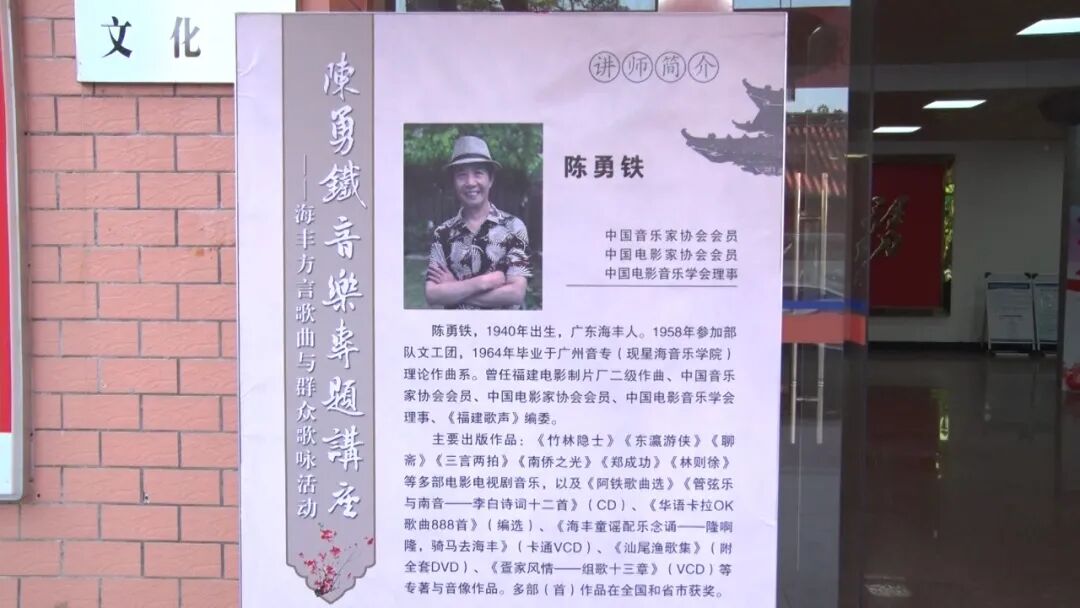 文化
陳勇鐵音樂專題講座
——海丰方言歌曲与群众歌咏活动
讲师简介
陈勇铁
中国音乐家协会会员
中国电影家协会会员
中国电影音乐学会理事
陈勇铁，1940年出生，广东海丰人。1958年参加部
队文工团，1964年毕业于广州音专（现星海音乐学院）
理论作曲系。曾任福建电影制片厂二级作曲、中国音乐
家协会会员、中国电影家协会会员、中国电影音乐学会
理事、《福建歌声》编委。
主要出版作品：《竹林隐士》《东瀛游侠》《聊
斋》《三言两拍》《南侨之光》《郑成功》《林则徐》
等多部电影电视剧音乐，以及《阿铁歌曲选》《管弦乐
与南音——李白诗词十二首》（CD）、《华语卡拉OK
歌曲888首》（编选）、《海丰童谣配乐念诵——隆啊
隆，骑马去海丰》（卡通VCD）、《汕尾渔歌集》（附
全套DVD）、《疍家风情——组歌十三章》（VCD）等
专著与音像作品。多部（首）作品在全国和省市获奖。